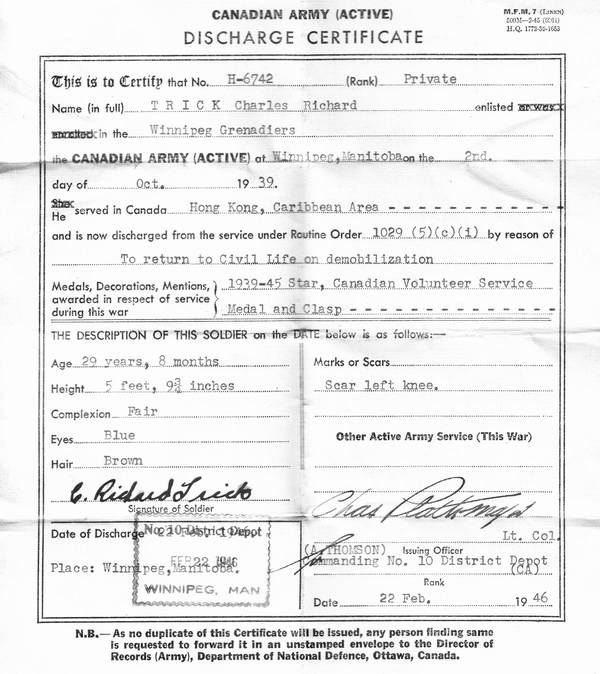 CANADIAN ARMY (ACTIVE)
DISCHARGE CERTIFICATE
M.F.M. 7 (Linen)
500M—2-45 (6091)
H.Q. 1772-39-1653
This is to Certify that No. H-6742 (Rank) Private
Name (in full) T R I C K Charles Richard enlisted or was
enrolled in the Winnipeg Grenadiers
the CANADIAN ARMY (ACTIVE) at Winnipeg,Manitoba on the 2nd.
day of Oct. 1939.
She
He served in Canada Hong Kong, Caribbean Area - - - - - - - - - - -
and is now discharged from the service under Routine Order 1029 (5)(c)(i) by reason of
To return to Civil Life on demobilization
Medals, Decorations, Mentions, awarded in respect of service during this war
1939-45 Star, Canadian Volunteer Service
Medal and Clasp - - - - - - - - - - - - -
THE DESCRIPTION OF THIS SOLDIER on the DATE below is as follows:—
Age 29 years, 8 months
Height 5 feet, 9¾ inches
Complexion Fair
Eyes Blue
Hair Brown
C. Richard Trick
Signature of Soldier
Date of Discharge 22 Feb. 1946.
No. 10 District Depot
FEB 22 1946
WINNIPEG, MAN
Place: Winnipeg,Manitoba.
Marks or Scars
Scar left knee.
Other Active Army Service (This War)
Chas
Lt. Col.
(A. THOMSON) Issuing Officer
Commanding No. 10 District Depot
(CA)
Rank
Date 22 Feb. 1946
N.B.— As no duplicate of this Certificate will be issued, any person finding same
is requested to forward it in an unstamped envelope to the Director of
Records (Army), Department of National Defence, Ottawa, Canada.